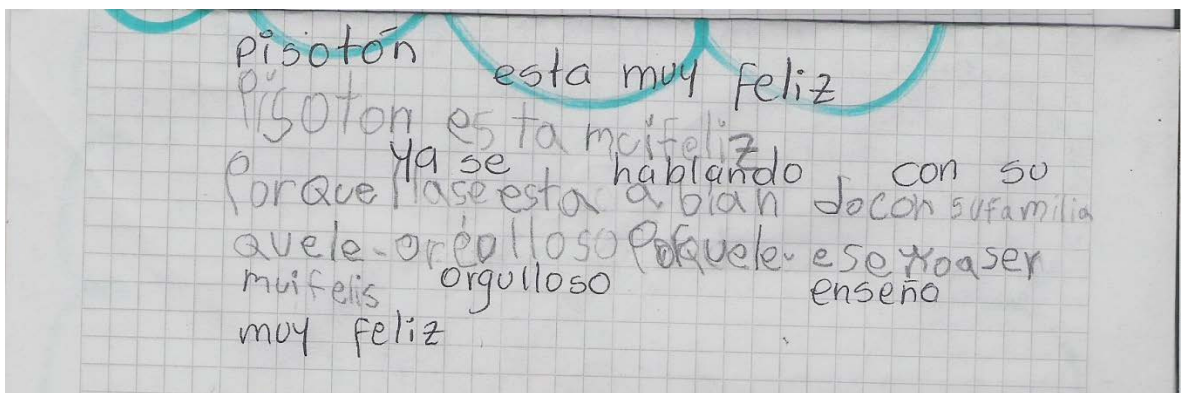 pisotón
esta muy feliz
Pisoton es ta muifeliz
ya se hablando con su
Porque llase esta a blan docon sufamilia
quele-oreolloso Porquele- eseñoaser
muifelis orgulloso enseño
muy feliz